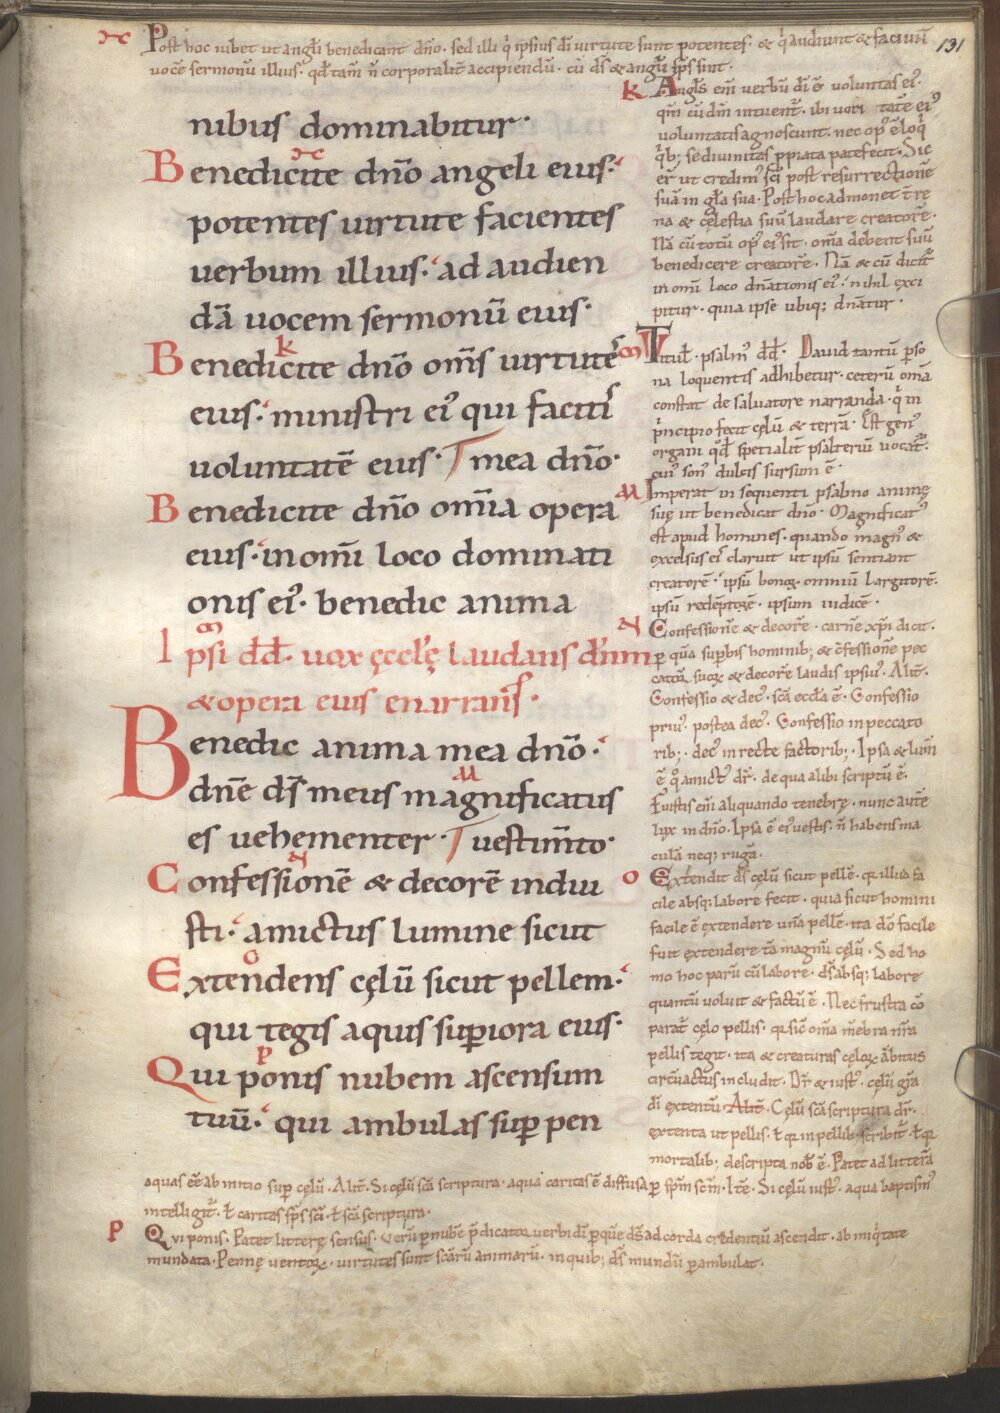 131
Post hoc iubet ut angl̄i benedicant dn̄o. sed illi q̇ ipsius dī uirtute sunt potentes. & q̇ audiunt & faciun̄
uocē sermonū illius. qđ tam̄ n̄ corporalit̄ accipiendū. cū ds̄ & angl̄i sps̄ sint.
nibus dominabitur.
Benedicite dn̄o angeli eius.
potentes uirtute facientes
uerbum illius. ad audien
dā uocem sermonū eius.
Benedicite dn̄o om̄s uirtutes
eius. ministri ei' qui faciti̾s
uoluntatē eius. mea dn̄o.
Benedicite dn̄o om̄ia opera
eius. in om̄i loco dominati
onis ei'. benedic anima
Ipsi dđ. uox ęccl̄ę laudans dn̄m
& opera eius enarrans.
Benedic anima mea dn̄o.
dn̄e ds̄ meus magnificatus
es uehementer. uestim̄to.
Confessionē & decorē indui
sti. amictus lumine sicut
Extendens cęlū sicut pellem.
qui tegis aquis sup̄iora eius.
Qui ponis nubem ascensum
tuū. qui ambulas sup̄ pen
k Angl̄s eni̅ verbū dī ē uoluntas ei'.
qm̄ cū dm̄ intuent̄. ibi uoluntatē ei'
uoluntatis agnoscunt. nec op' ē loq̇
q̇b; se diuinitas ppiata patefecit. Sic
er̄ ut credim' sc̄i post resurrectionē
suā in gl̄a sua. Post hoc admonet t̄rę
na & cęlestia suū laudare creatorē.
Nā cū totū op' ei' sit. om̄a debent suū
benedicere creatorē. Nā & cū dicit̄
in om̄i loco dn̄ationis ei'. nihil exci
pitur. quia ipse ubiq; dn̄atur.
Titul̄. psalm' dđ. Dauid tantū p̄so
na loquentis adhibetur. ceterū om̄a
constat de saluatore narranda. q̇ in
ṗncipio fecit cęlū & terrā. Est gen'
organi qđ specialit̄ psalteriū uocat̄.
cui' son' dulcis sursum ē.
M Imperat in sequenti psalmo animę
suę ut benedicat dn̄o. Magnificat'
est apud homines. quando magn' &
excelsus ei' claruit ut ipsū sentiant
creatorē. ipsū bonoꝝ omniū largitorē.
ipsū redēptorē. ipsum iudicē.
N Confessionē & decorē. carnē xp̄i dicit.
p̄ quā sup̄bis hominib; & cfessionē pec
catoꝝ suoꝝ & decorē laudis ipsius. Alit̄.
Confessio & dec'. sc̄a eccl̄a ē. Confessio
prius. postea dec'. Confessio in peccato
rib;. dec' in recte factorib;. Ipsa & lum̄
ē q̊ amict' dr̄. de qua alibi scriptū ē.
Fuistis eni̅ aliquando tenebrę. nunc autē
lux in dn̄o. Ipsa ē ei' uestis. n̄ habens ma
culā neq; rugā.
O Extendit ds̄ cęlū sicut pellē. qꝛ illud fa
cile absq; labore fecit. quia sicut homini
facile ē extendere unā pellē. ita dō facile
fuit extendere tā magnū cęlū. Sed ho
mo hoc paruū cū labore. ds̄ absq; labore
quantū uoluit & factū ē. Nec frustra cō
parat̄ cęlo pellis. qꝛ sic om̄a mēbra nr̄a
pellis tegit. ita & creaturas cęloꝝ ābitus
circūactus includit. Dr̄ & iust'. cęlū gr̄a
dī extentū. Alit̄. Cęlū sc̄a scriptura dr̄.
extenta ut pellis. ł qꝛ in pellib; scribit̄. ł qꝛ
mortalib; descripta nob̄ ē. Patet ad litterā
aquas eē ab initio sup̄ cęlū. Alit̄. Si cęlū sc̄a scriptura. aqua caritas ē diffusa p̄ spm̄ sc̄m. Itē. Si cęlū iust'. aqua baptism'
intelligit̄. ł caritas sps̄ sc̄i. ł sc̄a scriptura.
P Qui ponis. Patet litterę sensus. Verū p̄ nubē p̄dicatoꝝ uerbi dī p̄ quē ds̄ ad corda credentiū ascendit. ab iniq̇tate
mundata. Pennę uentoꝝ. uirtutes sunt sc̄arū animarū. in quib; ds̄ mundū p̄ambulat.